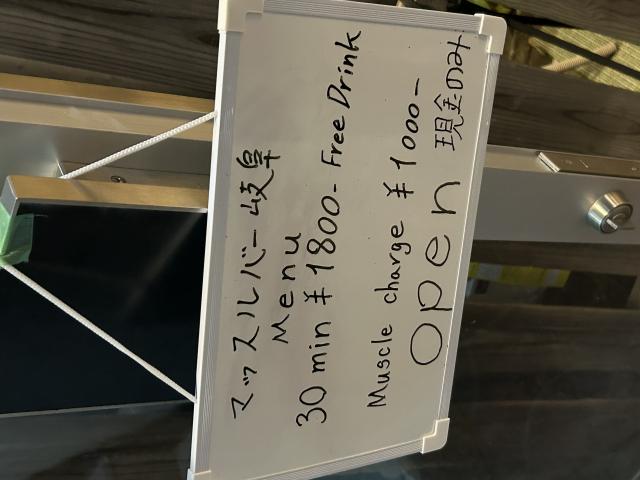 マッスルバー岐阜
Menu
30 min ¥1800- Free Drink
Muscle charge ¥1000-
Open 現金のみ